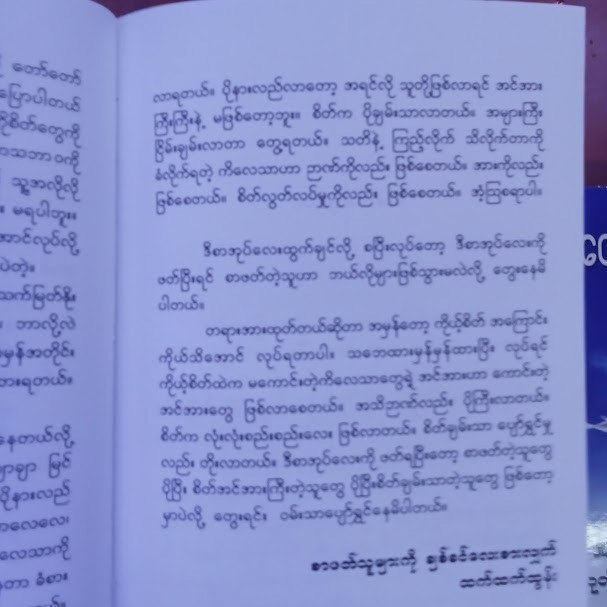 တော်တော်
ပြောပါတယ်
စိတ်တွေကို
သဘာဝကို
သူ့အလိုလို
မရပါဘူး။
အောင်လုပ်လို့
ပဲတဲ့။
သက်မြတ်နိုး
ဘာလို့လဲ
မှန်အတိုင်း
ထားရတယ်။
နေတယ်လို့
မြင်
ပိုနားလည်
လေလေ
လေသာကို
ခံစား
လာရတယ်။ ပိုနားလည်လာတော့ အရင်လို သူတို့ဖြစ်လာရင် အင်အား
ကြီးကြီးနဲ့ မဖြစ်တော့ဘူး။ စိတ်က ပိုချမ်းသာလာတယ်။ အများကြီး
ငြိမ်းချမ်းလာတာ တွေ့ရတယ်။ သတိနဲ့ ကြည့်လိုက် သိလိုက်တာကို
ခံလိုက်ရတဲ့ ကိလေသာဟာ ဉာဏ်ကိုလည်း ဖြစ်စေတယ်။ အားကိုလည်း
ဖြစ်စေတယ်။ စိတ်လွတ်လပ်မှုကိုလည်း ဖြစ်စေတယ်။ အံ့ဩစရာပါ။
ဒီစာအုပ်လေးထွက်ချင်လို့ စပြီးလုပ်တော့ ဒီစာအုပ်လေးကို
ဖတ်ပြီးရင် စာဖတ်တဲ့သူဟာ ဘယ်လိုများဖြစ်သွားမလဲလို့ တွေးနေမိ
ပါတယ်။
တရားအားထုတ်တယ်ဆိုတာ အမှန်တော့ ကိုယ့်စိတ် အကြောင်း
ကိုယ်သိအောင် လုပ်ရတာပါ။ သဘောထားမှန်မှန်ထားပြီး လုပ်ရင်
ကိုယ့်စိတ်ထဲက မကောင်းတဲ့ကိလေသာတွေရဲ့ အင်အားဟာ ကောင်းတဲ့
အင်အားတွေ ဖြစ်လာစေတယ်။ အသိဉာဏ်လည်း ပိုကြီးလာတယ်။
စိတ်က လုံးလုံးစည်းစည်းလေး ဖြစ်လာတယ်။ စိတ်ချမ်းသာ ပျော်ရွှင်မှု
လည်း တိုးလာတယ်။ ဒီစာအုပ်လေးကို ဖတ်ရပြီးတော့ စာဖတ်တဲ့သူတွေ
ပိုပြီး စိတ်အင်အားကြီးတဲ့သူတွေ ပိုပြီးစိတ်ချမ်းသာတဲ့သူတွေ ဖြစ်တော့
မှာပဲလို့ တွေးရင်း ဝမ်းသာပျော်ရွှင်နေမိပါတယ်။
စာဖတ်သူများကို ချစ်ခင်လေးစားလျှက်
ထက်ထက်ထွန်း